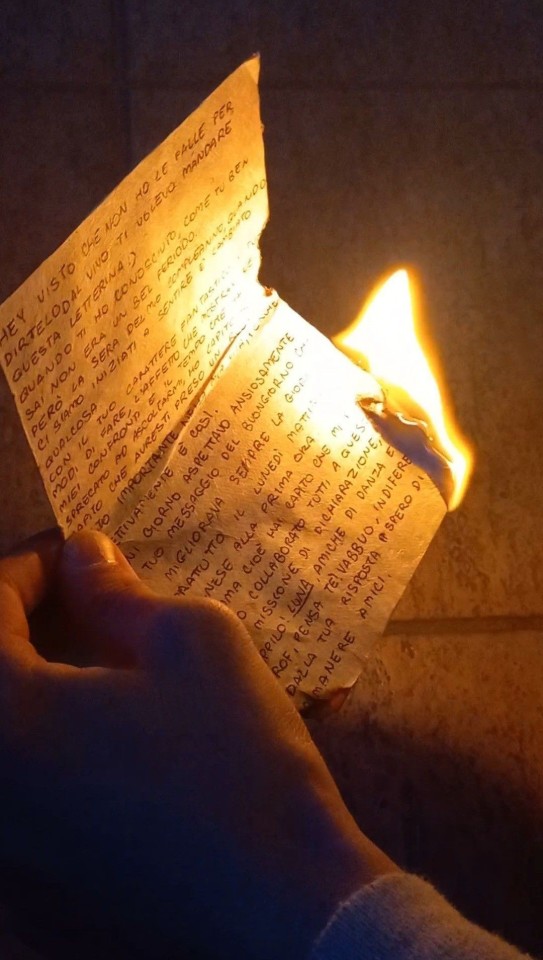 HEY VISTO CHE NON HO LE PALLE PER
DIRTELO DAL VIVO TI VOLEVO MANDARE
QUESTA LETTERINA:)
QUANDO TI HO CONOSCIUTO, COME TU BEN
SAI, NON ERA UN BEL PERIODO.
PERÒ LA SERA DEL MIO COMPLEANNE, QUANDO
CI SIAMO INIZIATI A SENTIRE È CAMBIATO
QUALCOSA.
CON IL TUO CARATTERE FANTASTICO
MODI DI FARE, L'AFFETTO CHE
MIEI CONFRONTI E IL TEMPO CHE
SPRECATO AD ASCOLTARMI, HO CAPITO
CAPITO CHE AVRESTI PRESO UN
IMPORTANTE
ETTIVAMENTE È COSÌ.
NI GIORNO ASPETTAVO ANSIOSAMENTE
TUO MESSAGGIO DEL BUONGIORNO CH
MIGLIORAVA SEMPRE LA GIOR
RATUTTO IL LUNEDÌ MATTI
NESE ALLA PRIMA ORA
MA CIOÈ HAI CAPITO CHE MI
O COLLABORATO TUTTI A QUES
MISSIONE DI DICHIARAZIONE,
LUNA AMICHE DI DANZA E
ROF, PENSA TE! VABBUO', INDIFERE
DALLA TUA RISPOSTA SPERO DI
MANERE AMICI.